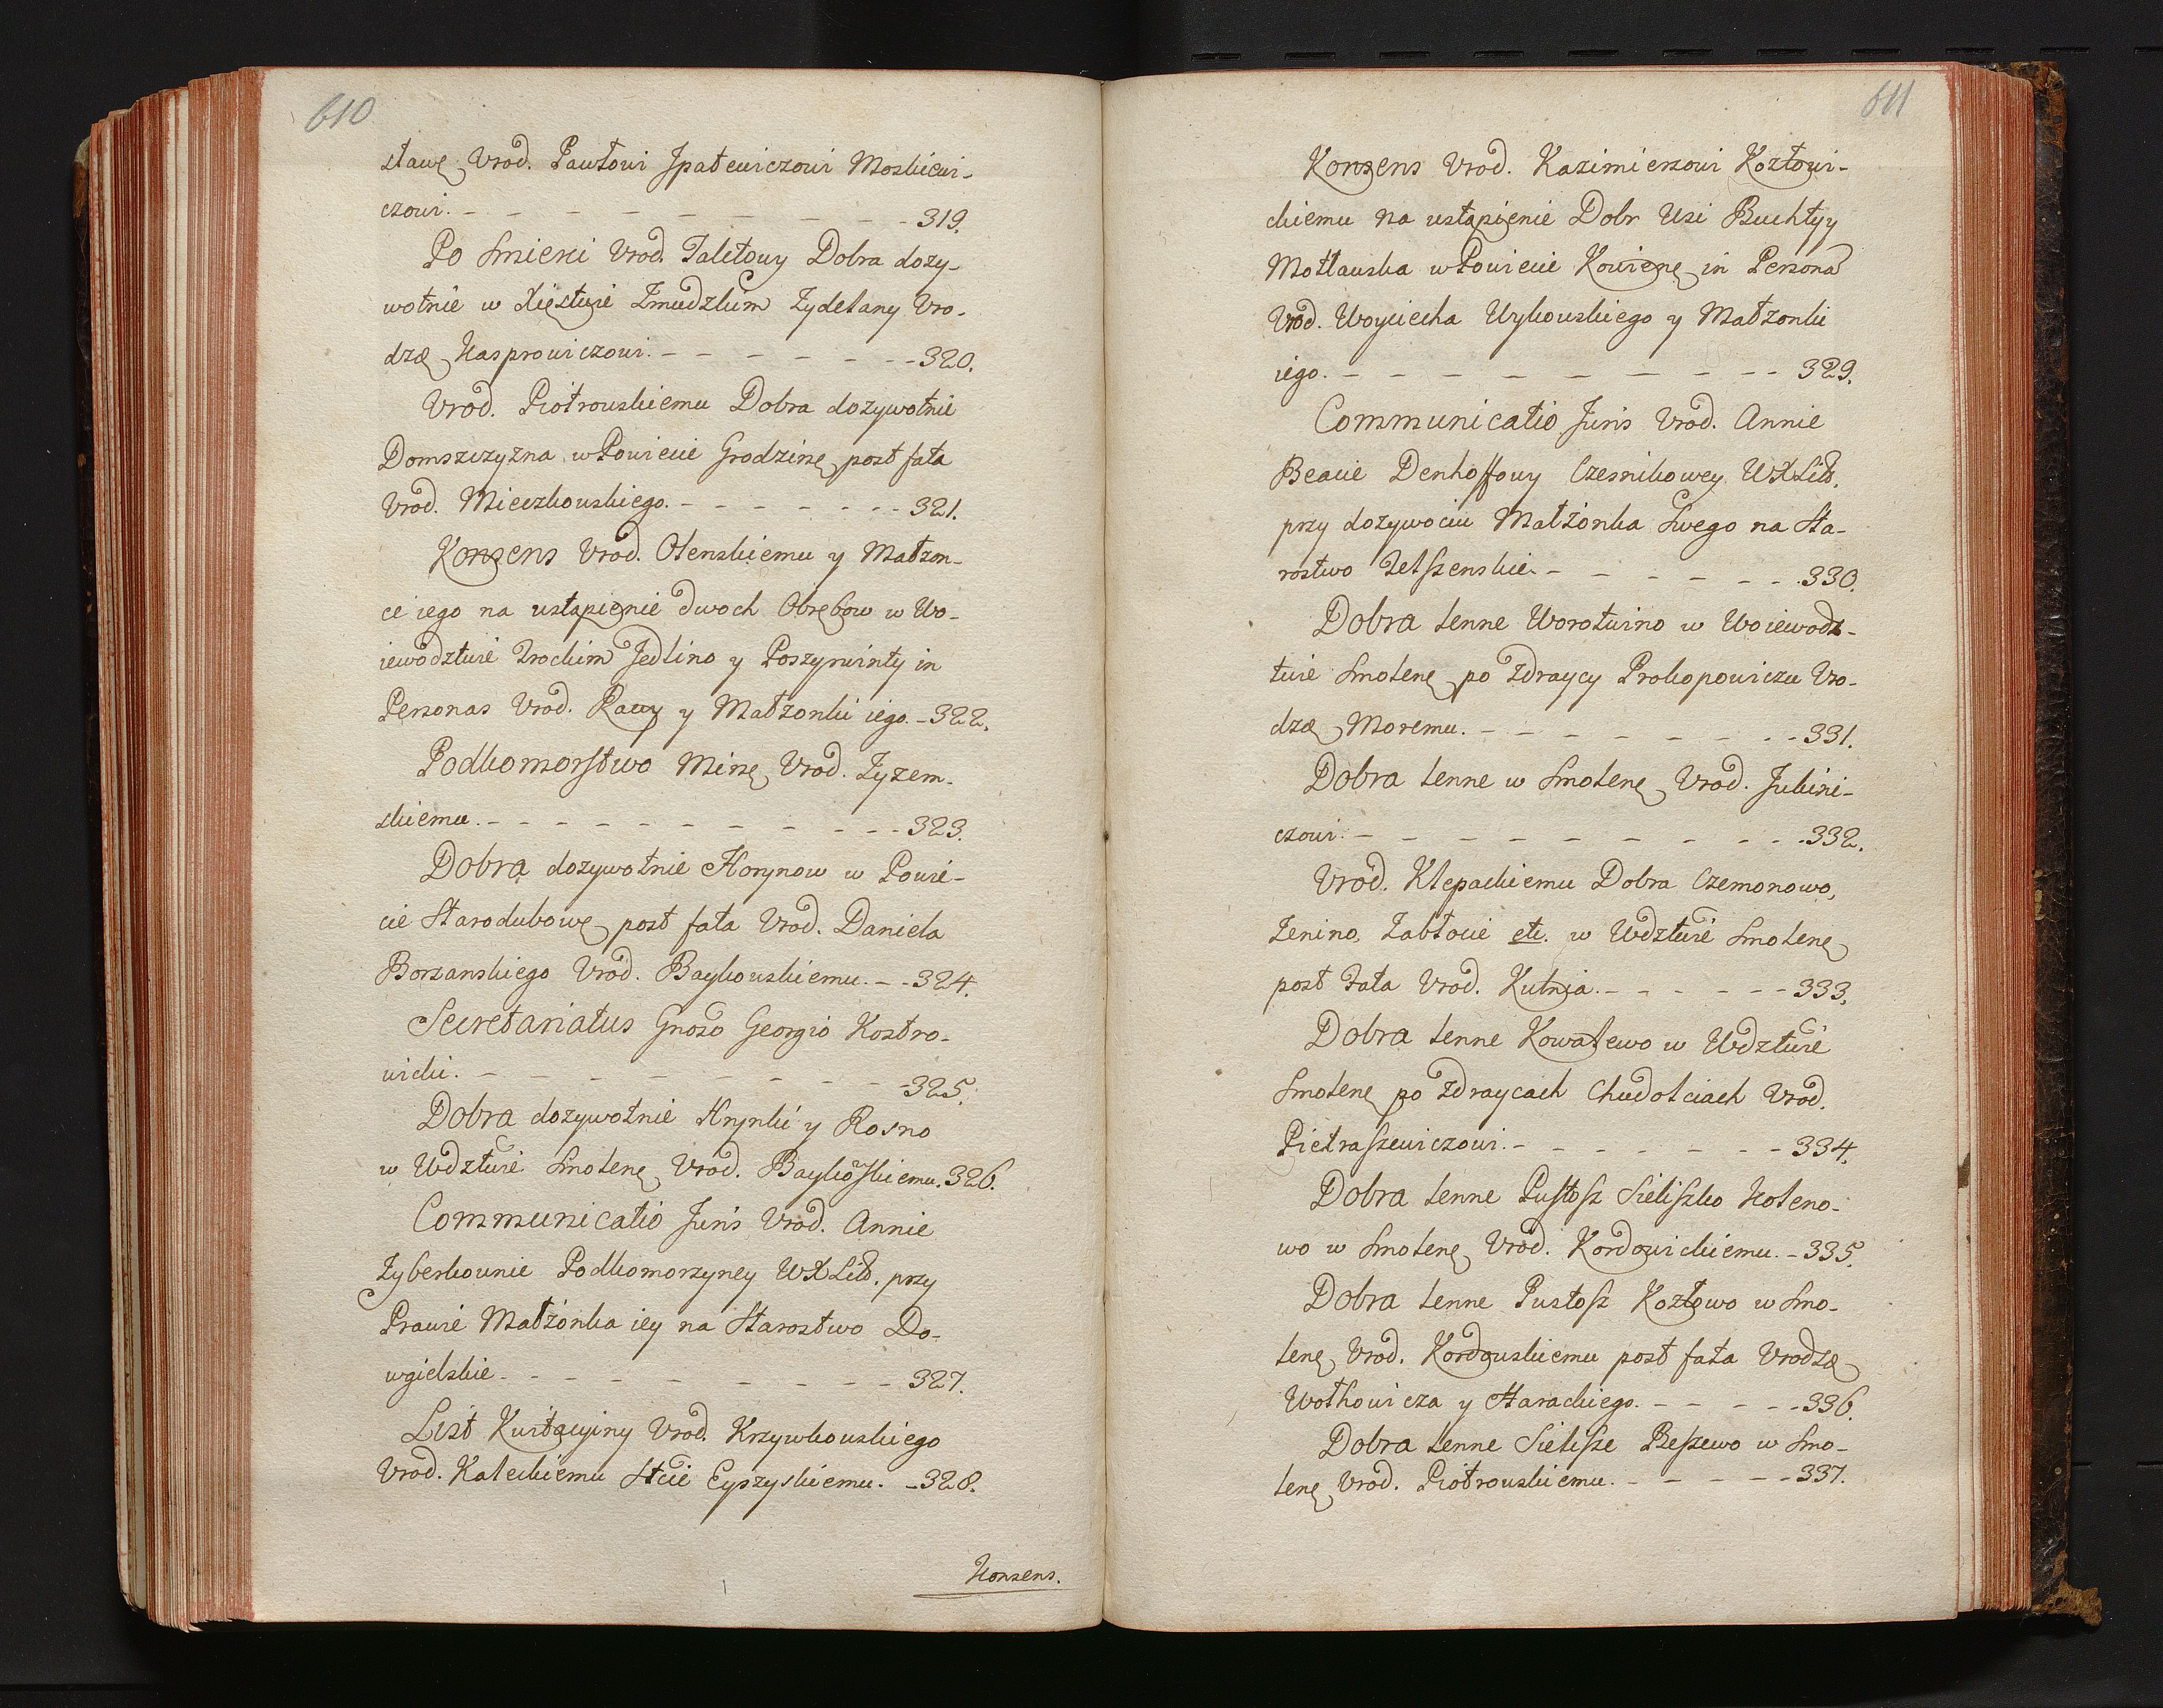 610
sławę Vrod. Pawłowi Jpatewiczowi Moskiewi-
czowi. - - - - - - - - - 319.
Po smierci Vrod. Taletowy Dobra dozy-
wotnie w Xięstwie Zmudzkim Zydelany Vro-
dzę Kasprowiczowi. - - - - - - - 320.
Vrod. Piotrowskiemu Dobra dozywotnie
Domszczyzna w Powiecie Grodzinę post fata
Vrod. Mieczkowskiego. - - - - - - - 321.
Konsens Vrod. Olenskiemu y Małzon-
ce iego na ustąpienie dwoch Obrębow w Wo-
iewodztwie Trockim Jedlino y Poszyrwinty in
Personas Vrod. Raczy y Małzonki iego. - 322.
Podkomorstwo Minę Vrod. Zyzem-
skiemu. - - - - - - - - - 323.
Dobra dozywotnie Horynow w Powie-
cie Starodubowę post fata Vrod. Daniela
Borzanskiego Vrod. Baykowskiemu. - - 324.
Secretariatus Gnoso Georgio Kostro-
wicki. - - - - - - - - - 325.
Dobra dozywotnie Hrynki y Rosno
w Wdztwie Smolenę Vrod. Baykoskiemu. 326.
Communicatio Juris Vrod. Annie
Zyberkownie Podkomorzyney WXLitt. przy
Prawie Małżonka iey na Starostwo Do-
wgielskie - - - - - - - - - 327.
List Kwitacyiny Vrod. Krzywkowskiego
Vrod. Kaleckiemu Stcie Eyszyskiemu. - 328.
Konsens.
611
Konsens Vrod. Kazimierzowi Kozłowi-
ckiemu na ustąpienie Dobr Usi Buchtyy
Mottawska w Powiecie Kowienę in Persona
Vrod. Woyciecha Wykowskiego y Małzonki
iego. - - - - - - - - - 329.
Communicatio Juris Vrod. Annie
Beacie Denhoffowy Czesnikowey WXLitt.
przy dozywociu Małżonka Swego na Sta-
rostwo Zelszenskie. - - - - - - - 330.
Dobra lenne Worotwino w Woiewodz-
twie Smolenę po Zdraycy Prokopowiczu Vro-
dzę Moremu. - - - - - - - - 331.
Dobra lenne w Smolenę Vrod. Jukini-
czowi. - - - - - - - - - 332.
Vrod. Klepackiemu Dobra Czemonowo,
Zenino, Zabłocie etc. w Wdztwie Smolenę
post Fata Vrod. Kutnia. - - - - - - 333.
Dobra lenne Kowalewo w Wdztwie
Smolenę po Zdraycach Chudolciach Vrod.
Pietraszewiczowi. - - - - - - - 334.
Dobra lenne Pustosz Sieliszko Koleno-
wo w Smolenę Vrod. Kordowickiemu. - 335.
Dobra lenne Pustosz Kozłowo w Smo-
lenę Vrod. Kordowskiemu post fata Vrodzę
Wołkowicza y Starackiego. - - - - - 336.
Dobra lenne Sielisze Beszewo w Smo-
lenę Vrod. Piotrowskiemu. - - - - - 337.